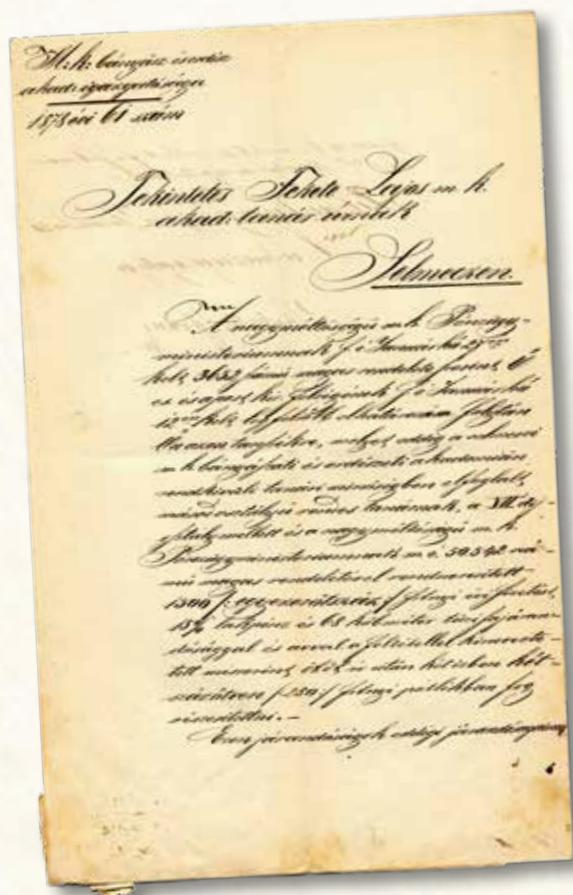 M. k. bányász és erdész
akad. igazgatósága
1878 évi 61 szám
Tekintetes Fekete Lajos m. k.
akad. tanár úrnak
Selmeczen.
A nagyméltóságú m. k. Pénzügy-
ministeriumnak f. é. Januárhó 27
kelt, 3632 számú magas rendelete szerint, Ő
cs. és apost. kir. Felségének f. é. Januárhó
12 kelt legfelsőbb elhatározása folytán
azon tanszékre, melyet eddig a selmeczi
m. k. bányászati és erdészeti akademián
rendkívüli tanári minőségben elfoglalt,
másodosztályú rendes tanárnak, a VII
mellett és a nagyméltóságú m. k.
Pénzügyministeriumnak m. é. 50342 szá-
mú magas rendeletével rendszeresített
1300 f. egyezerháromszáz f évi fizetés,
lakpénz és 68 köbméter tűzifajáran-
dósággal és azzal a feltétellel kinevez-
tetett öt év után két ízben két-
százötven (250) f pótlékban fog
részesíttetni. –
Ezen járandóságok eddigi